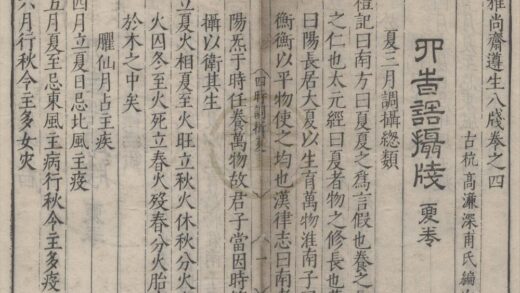 雅尚齋遵生八牋卷之四
古杭高濂深甫氏編
四時調攝牋 夏卷
夏三月調攝總類
禮記曰南方曰夏夏之爲言假也養之
之仁也太元經曰夏者物之修長也
曰陽長居大夏以生育萬物淮南子
衡衡以平物使之均也漢律志曰南者
四時調攝夏 一
陽炁于時任養萬物故君子當因時
攝以衛其生
立夏火相夏至火旺立秋火休秋分火
火囚冬至火死立春火歿春分火胎
於木之中矣
臞仙月占主疾
四月立夏日忌北風主疫
五月夏至忌東風主病行秋令主多疫
六月行秋令主多女灾